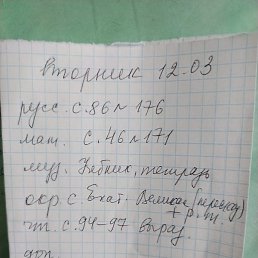 вторник 12.03
русс. с.86 № 176
мат. с.46 № 171
муз. Учебник, тетрадь
окр с. Екат. Великая (пересказ)
+ р.т.
чт. с.94-97 выраз.
доп.